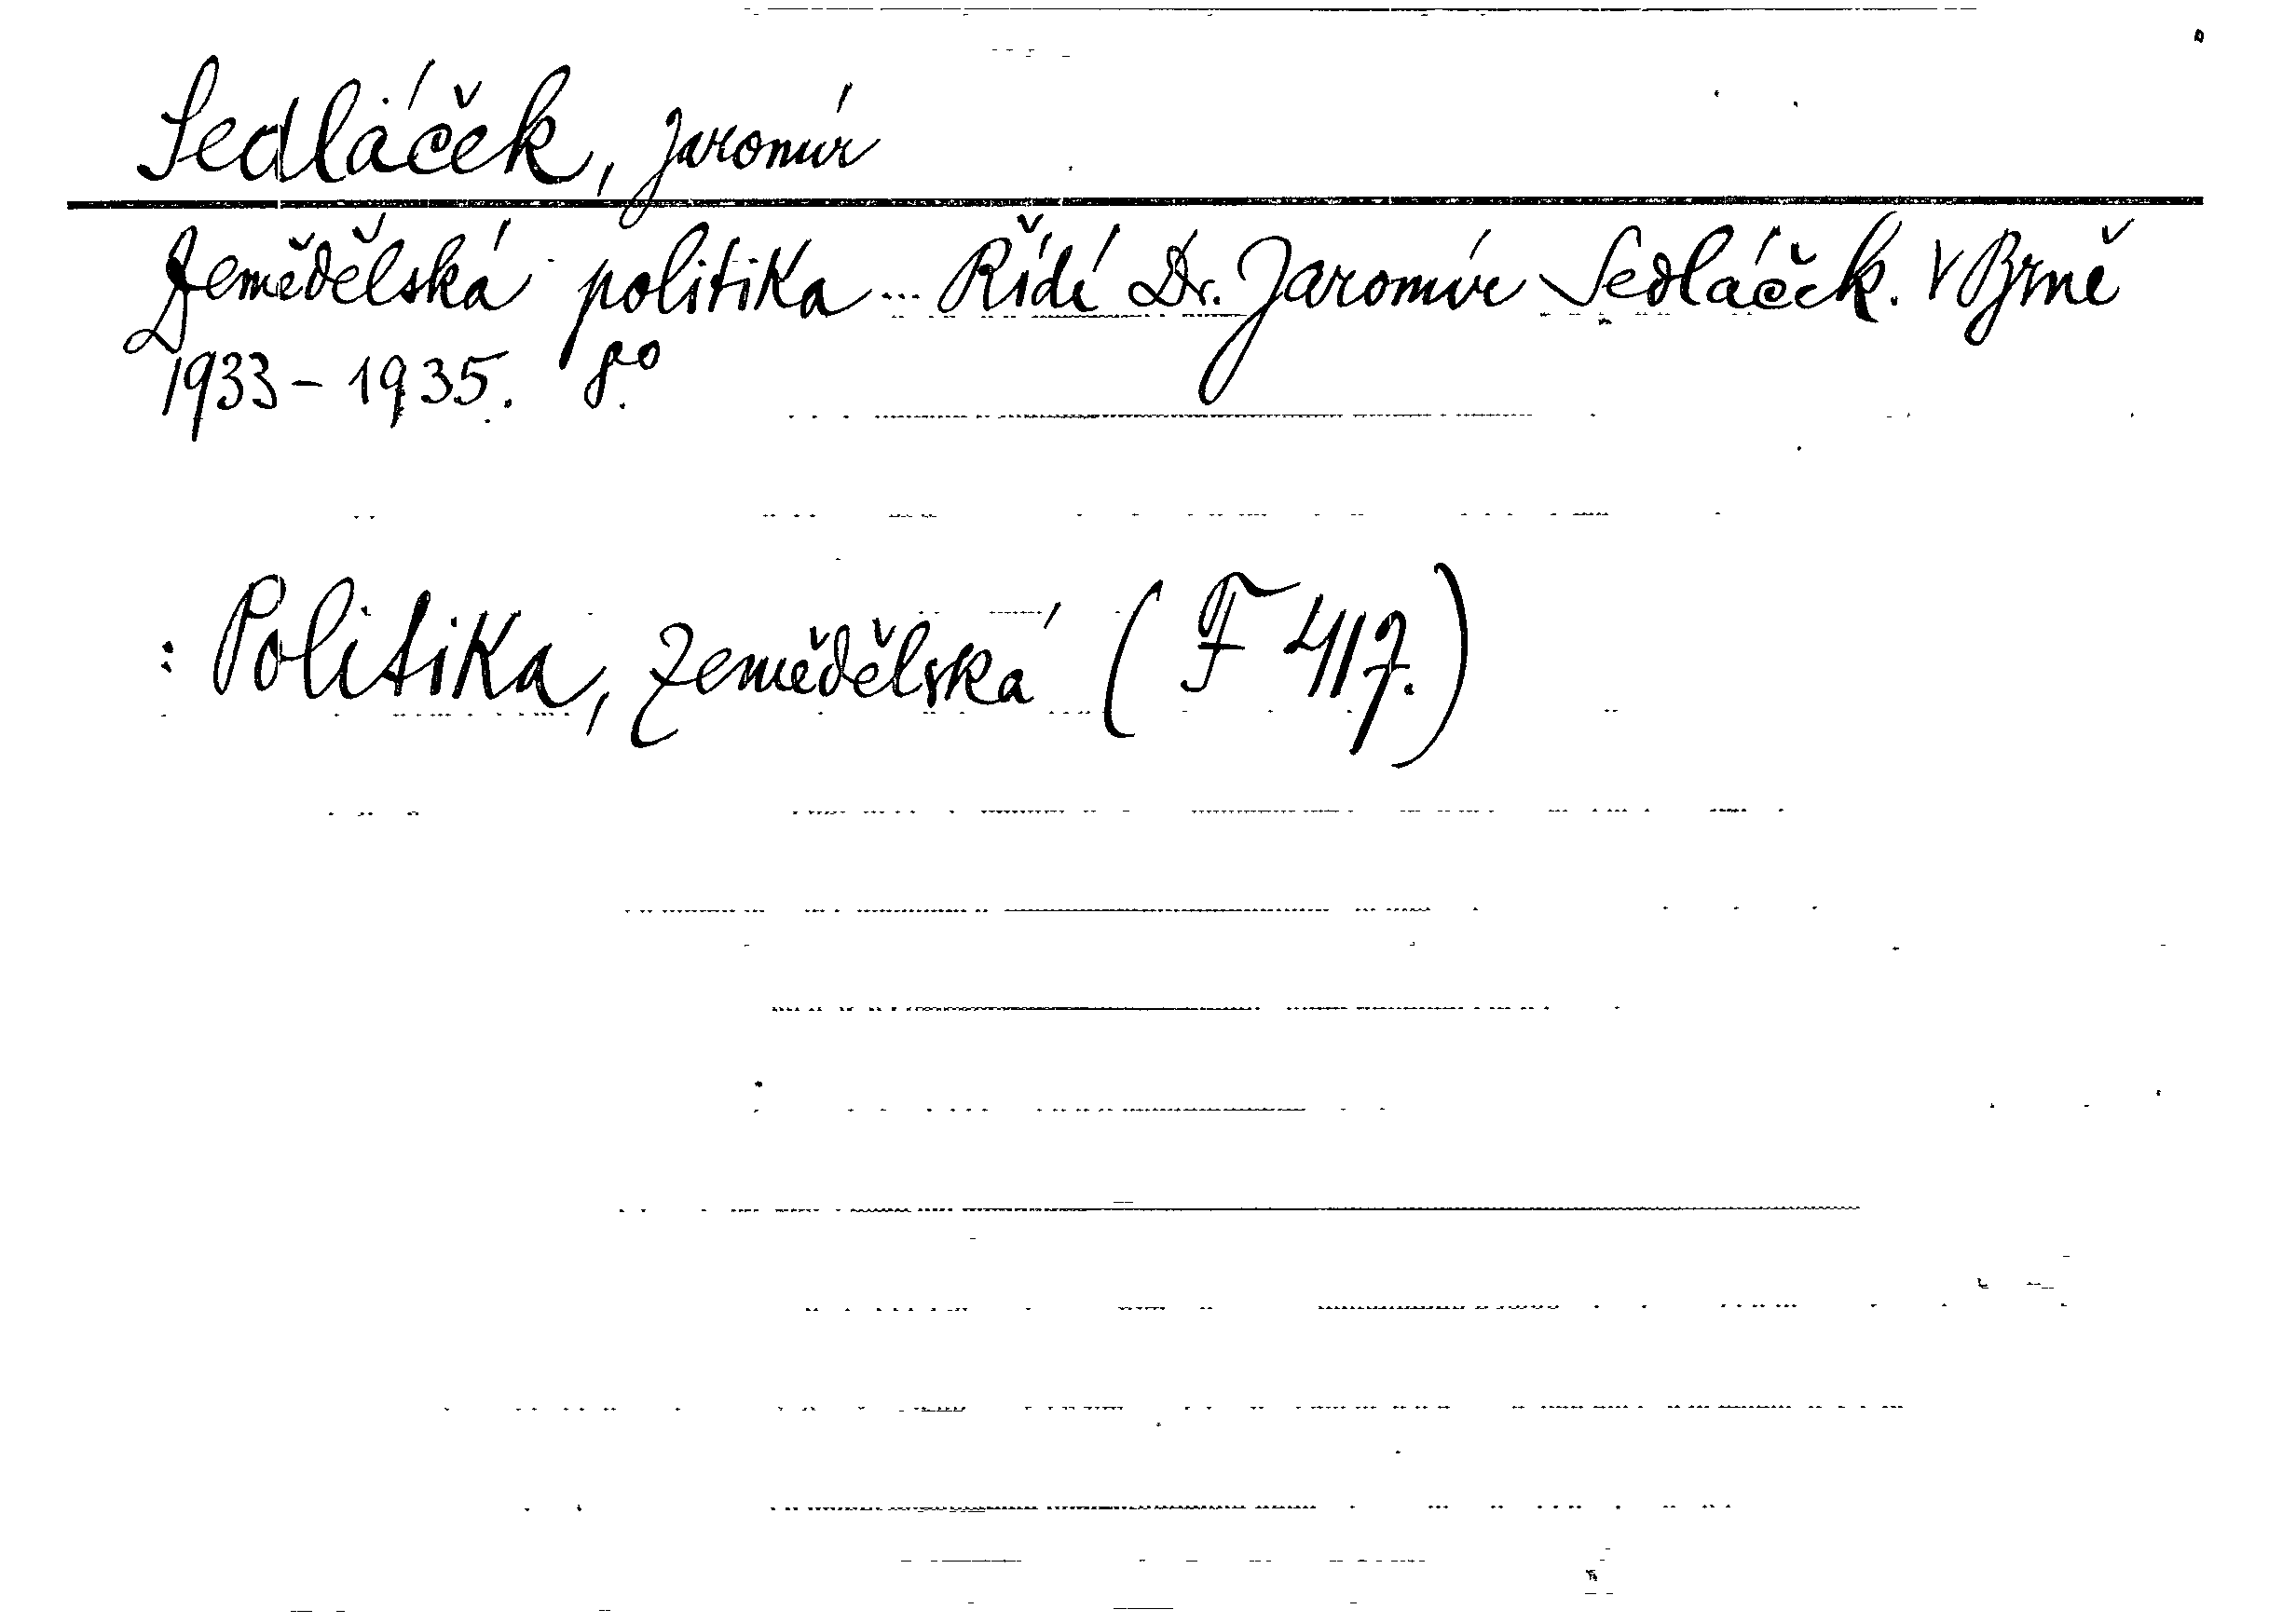 Sedláček, Jaromír
Zemědělská politika ... Řídí Dr. Jaromír Sedláček. V Brně
1933 - 1935. 8°
: Politika, zemědělská (F 417.)